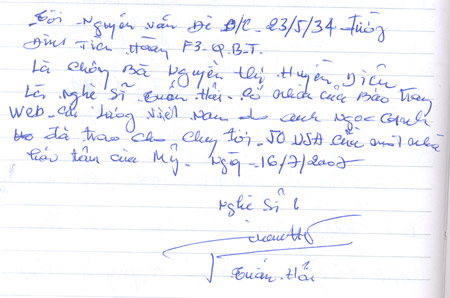 Tôi Nguyễn Văn Đề Đ/C. 23/5/34 - đường
Đinh Tiên Hoàng F3-Q.B.T.
Là chồng Bà Nguyễn thị Huyền. Diễn
Là Nghệ Sĩ Tuấn. Hải. Có nhận của Báo Trang
Web. Cải Lương Việt Nam do anh Ngọc
đã trao cho chúng tôi. 50 USA của một nhà
hảo tâm của Mỹ. Ngày -16/7/2007
Nghệ Sĩ
Tuấn. Hải